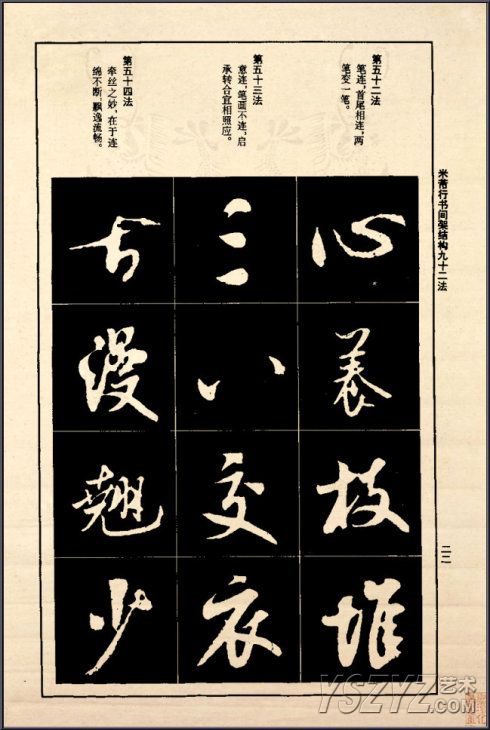 米芾行书间架结构九十二法
第五十二法
笔连，首尾相连，两
笔变一笔。
第五十三法
意连，笔画不连，启
承转合宜相照应。
第五十四法
牵丝之妙，在于连
绵不断，飘逸流畅。
心
养
枝
堆
三
八
交
衣
古
漫
翘
少
二二
YSZYZ艺术
.COM